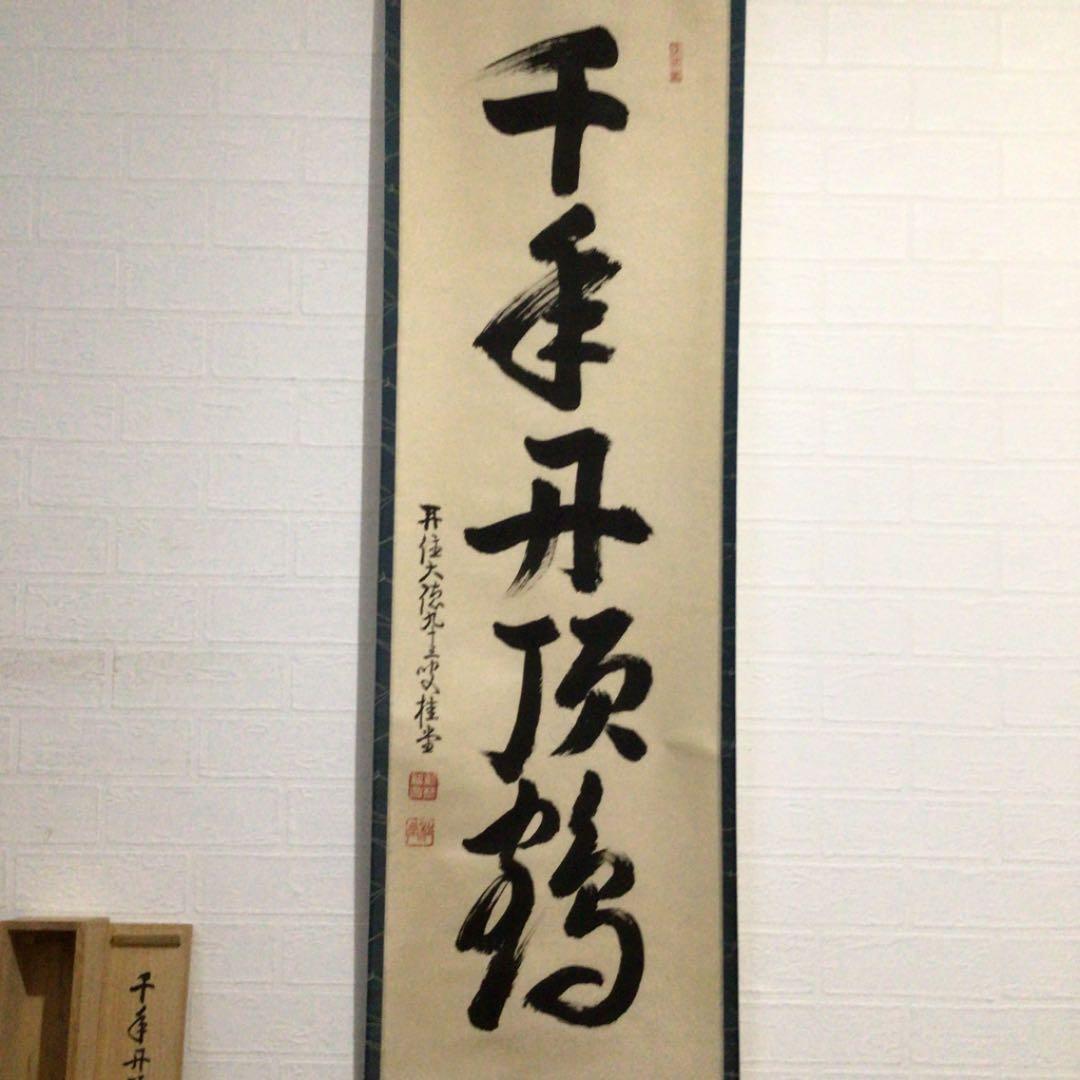 千年丹頂鶴
再住大徳九十三叟桂堂
千年丹頂